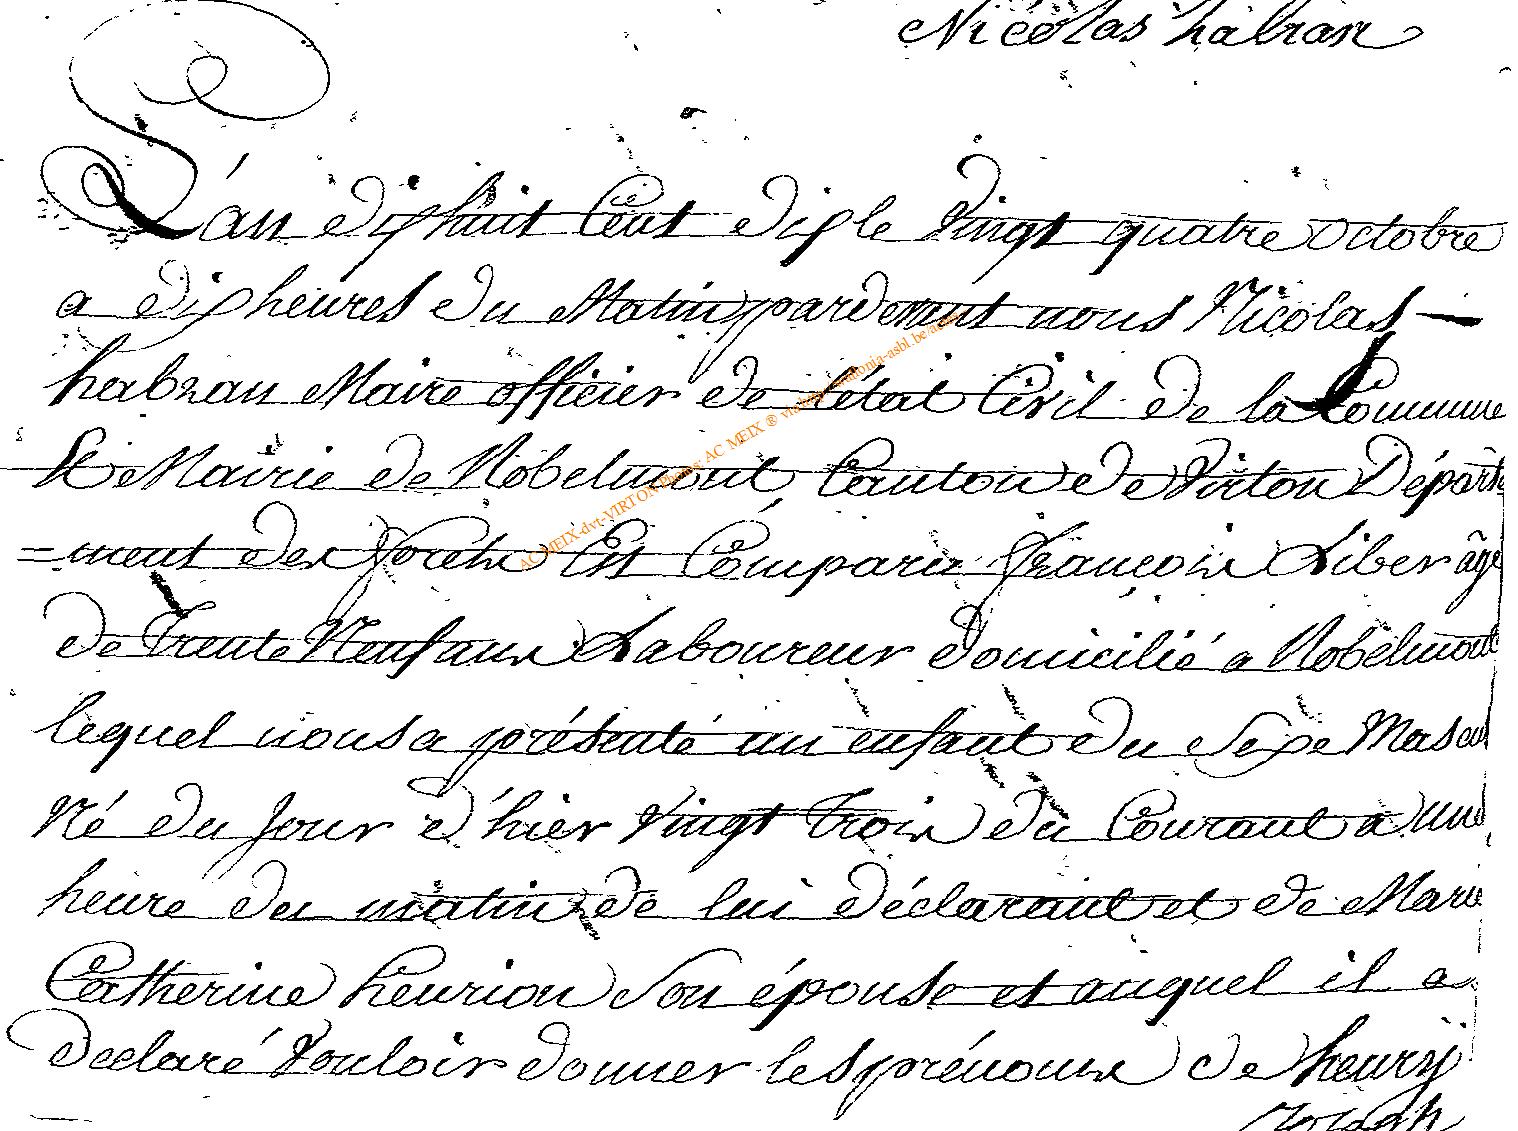 Nicolas habran
L'an dixhuit Cent dix le Vingt quatre Octobre
a dix heures du Matin pardevant nous Nicolas —
habran Maire officier de l'état Civil de la Commune
& Mairie de Robelmont, Canton de Virton Départe
=ment des forêts Est Comparu François Liber âgé
de Trente Neuf ans Laboureur domicilié a Robelmont
lequel nous a présenté un enfant du Sexe Mascu
Né du Jour d'hier Vingt Trois du Courant a une
heure du matin de lui déclarant et de Marie
Catherine henrion Son épouse et auquel il a
declaré Vouloir donner les prénoms de henrÿ
Joseph
AC MEIX-dvt-VIRTON AC MEIX ®